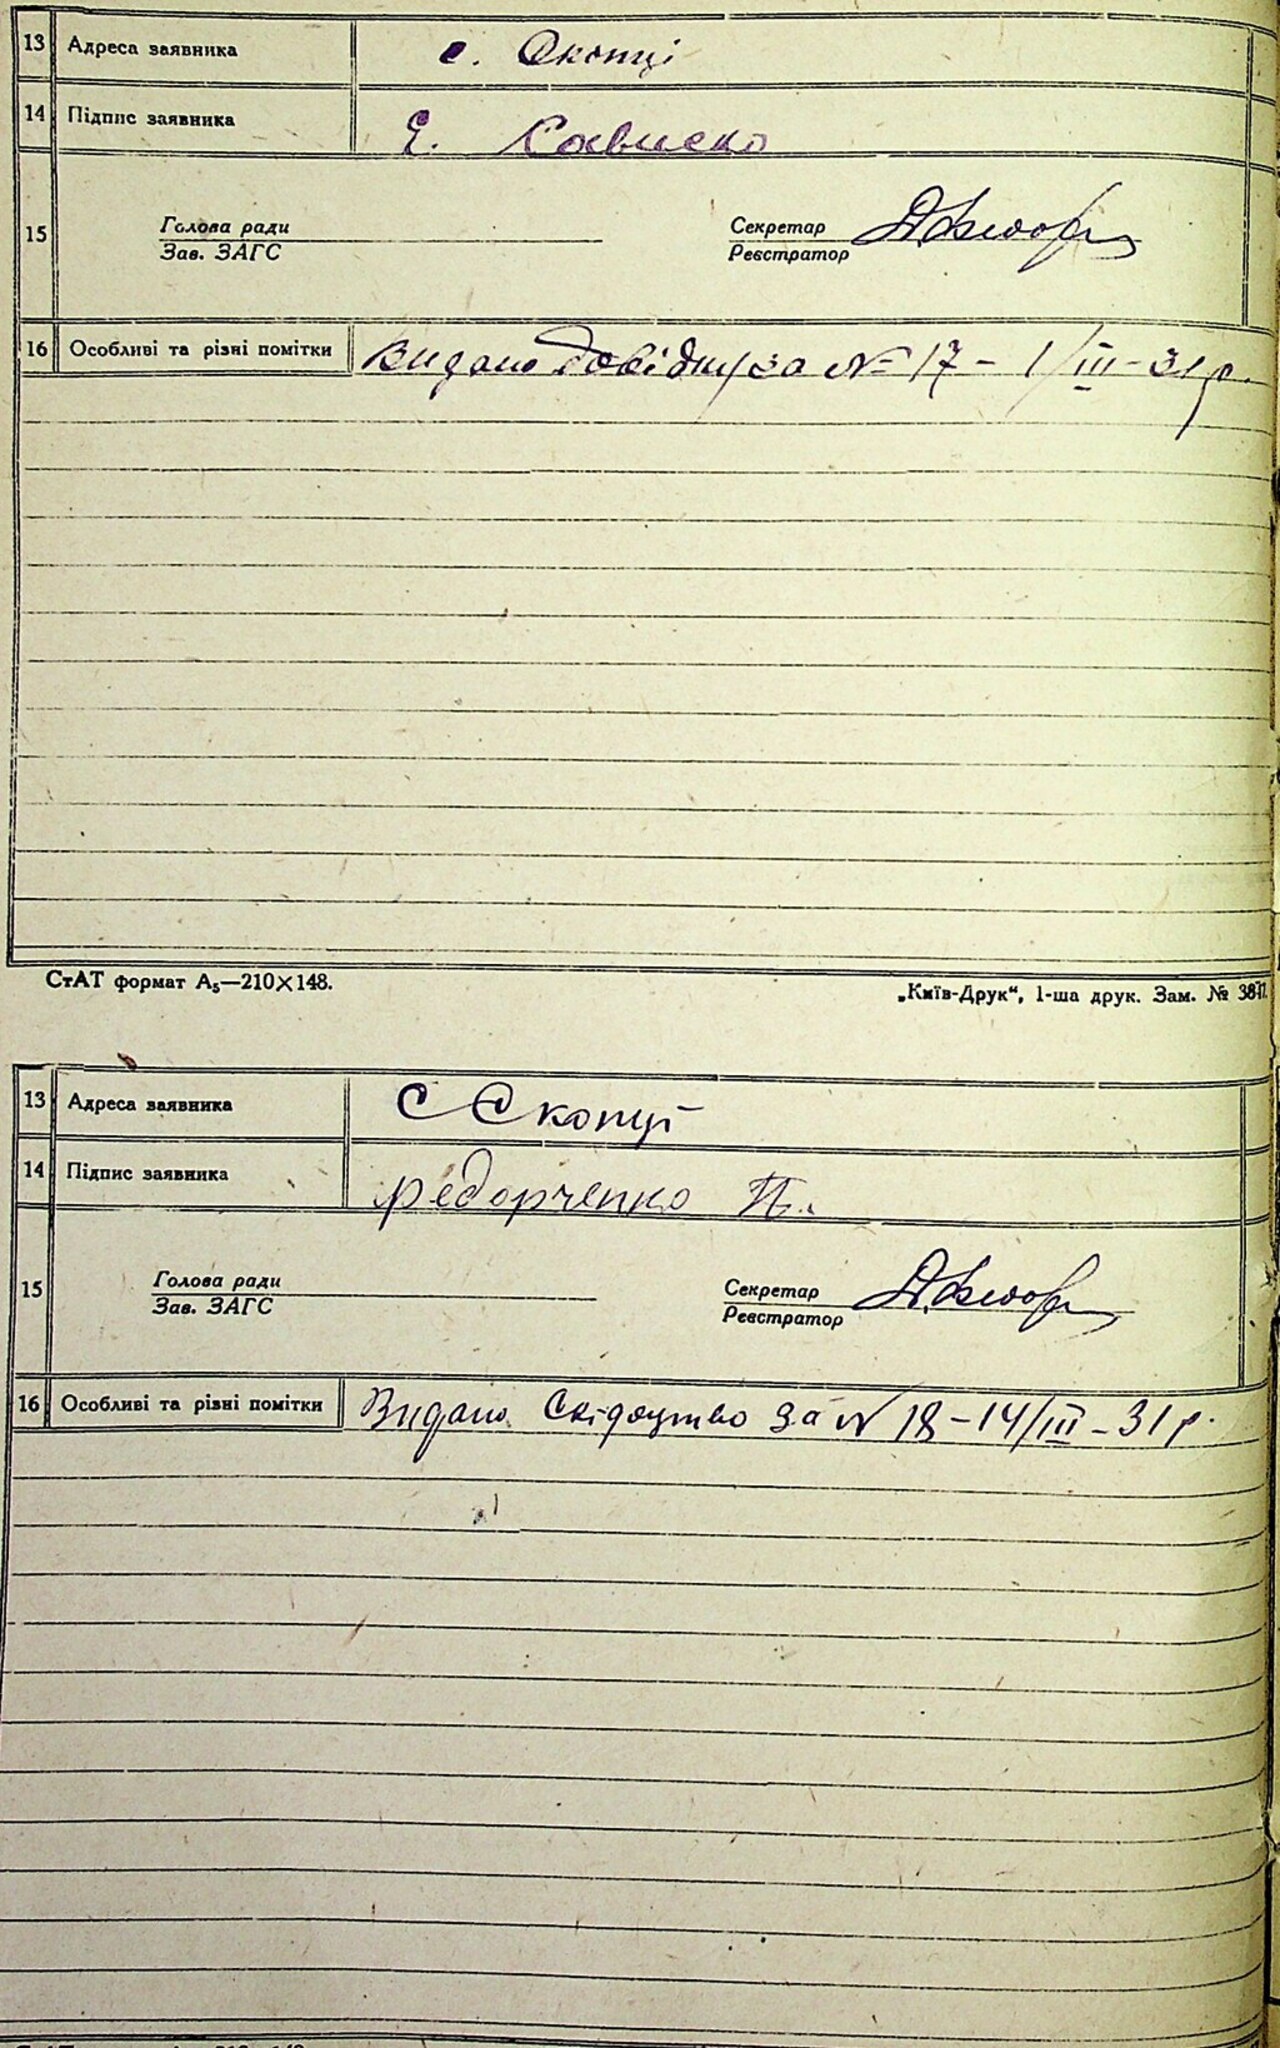 13 Адреса заявника с. Скопці
14 Підпис заявника Є. Сависко
15 Голова ради Секретар
Зав. ЗАГС Реєстратор
16 Особливі та різні помітки Видано довідку за № 17 – 1/III – 31 р.
СтАТ формат А₅—210×148. „Київ-Друк“, 1-ша друк. Зам. №
13 Адреса заявника С Скопці
14 Підпис заявника Федорченко П.
15 Голова ради Секретар
Зав. ЗАГС Реєстратор
16 Особливі та різні помітки Видано Свідоцтво за № 18 – 14/III – 31 р.